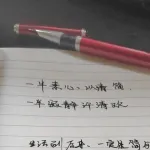 一半素心：以清
一半寂静许清欢
生活到后来，一定是简与